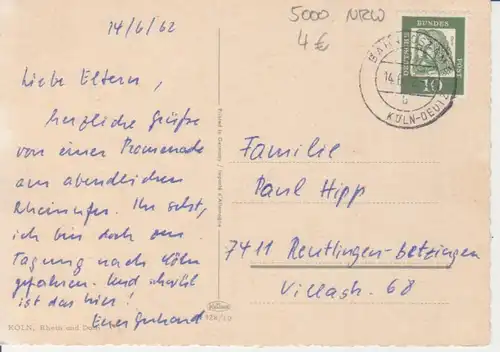 14/6/62
5000 NRW
4 €
DEUTSCHE BUNDESPOST
10
BAHNPOSTAMT
14.6
b
KÖLN-DEUTZ
Liebe Eltern,
herzliche Grüße
von einer Promenade
am abendlichen
Rheinufer. Ihr seht,
ich bin doch zur
Tagung nach Köln
gefahren. Und
ist das hier!
Euer Gerhard
Familie
Paul Hipp
7411 Reutlingen-Betzingen
Villastr. 68
Printed in Germany / Imprimé d'Allemagne
KÖLN, Rhein und Dom